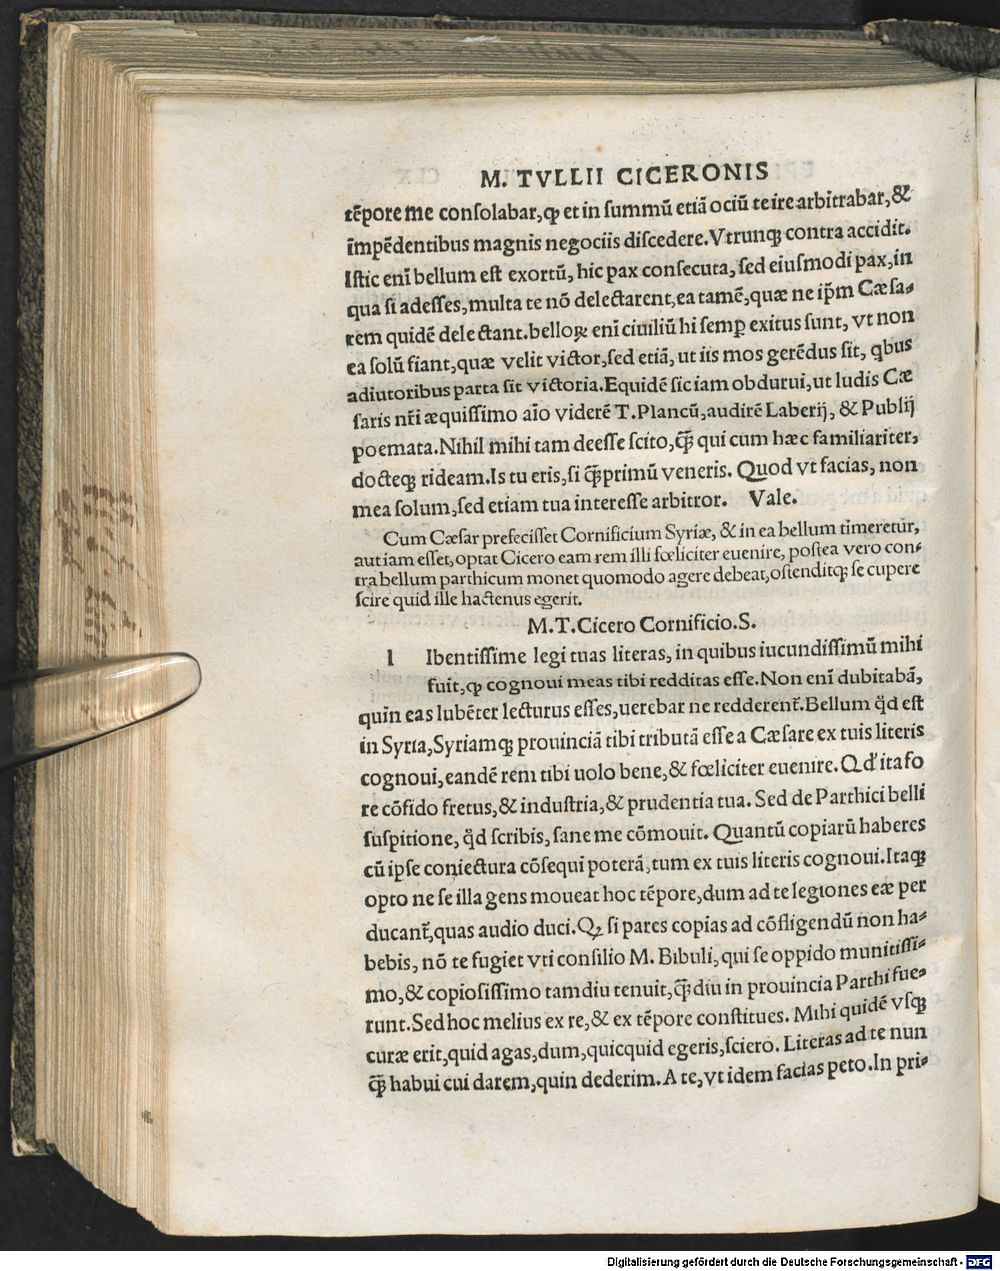 M. TVLLII CICERONIS
tẽpore me consolabar, ꝙ et in summũ etiã ociũ te ire arbitrabar, &
ĩmpẽdentibus magnis negociis discedere. Vtrunꝗ contra accidit.
Istic enĩ bellum est exortũ, hic pax consecuta, sed eiusmodi pax, in
qua si adesses, multa te nõ delectarent, ea tamẽ, quæ ne ip̃m Cæsa-
rem quidẽ delectant. belloꝝ enĩ ciuiliũ hi semꝑ exitus sunt, vt non
ea solũ fiant, quæ velit victor, sed etiã, ut iis mos gerẽdus sit, qbus
adiutoribus parta sit victoria. Equidẽ sic iam obdurui, ut ludis Cæ
saris nr̃i æquissimo aĩo viderẽ T. Plancũ, audirẽ Laberij, & Publij
poemata. Nihil mihi tam deesse scito, q̃ȝ qui cum hæc familiariter,
docteꝗ rideam. Is tu eris, si q̃ȝprimũ veneris. Quod vt facias, non
mea solum, sed etiam tua interesse arbitror. Vale.
Cum Cæsar prefecisset Cornificium Syriæ, & in ea bellum timeretur,
aut iam esset, optat Cicero eam rem illi fœliciter euenire, postea vero con-
tra bellum parthicum monet quomodo agere debeat, ostenditꝗ se cupere
scire quid ille hactenus egerit.
M.T.Cicero Cornificio.S.
l Ibentissime legi tuas literas, in quibus iucundissimũ mihi
fuit, ꝙ cognoui meas tibi redditas esse. Non enĩ dubitabã,
quin eas lubẽter lecturus esses, uerebar ne redderent᷑. Bellum q̃d est
in Syria, Syriamꝗ prouinciã tibi tributã esse a Cæsare ex tuis literis
cognoui, eandẽ rem tibi uolo bene, & fœliciter euenire. Qd' ita fo
re cõfido fretus, & industria, & prudentia tua. Sed de Parthici belli
suspitione, q̃d scribis, sane me cõmouit. Quantũ copiarũ haberes
cũ ipse coniectura cõsequi poterã, tum ex tuis literis cognoui. Itaꝗ
opto ne se illa gens moueat hoc tẽpore, dum ad te legiones eæ per
ducant᷑, quas audio duci. Qꝫ si pares copias ad cõfligendũ non ha-
bebis, nõ te fugiet vti consilio M. Bibuli, qui se oppido munitissi-
mo, & copiosissimo tamdiu tenuit, q̃ȝ diu in prouincia Parthi fue-
runt. Sed hoc melius ex re, & ex tẽpore constitues. Mihi quidẽ vsꝗ
curæ erit, quid agas, dum, quicquid egeris, sciero. Literas ad te nun
q̃ȝ habui cui darem, quin dederim. A te, vt idem facias peto. In pri-
Digitalisierung gefördert durch die Deutsche Forschungsgemeinschaft - DFG